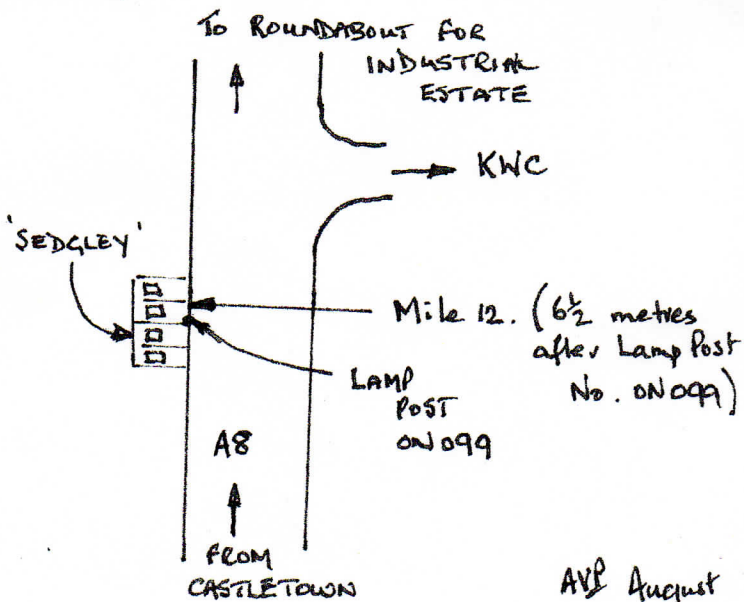 To ROUNDABOUT FOR
INDUSTRIAL
ESTATE
KWC
'SEDGLEY'
Mile 12. (6½ metres
after Lamp Post
No. 0N099)
LAMP
POST
0N099
A8
FROM
CASTLETOWN
AVP August